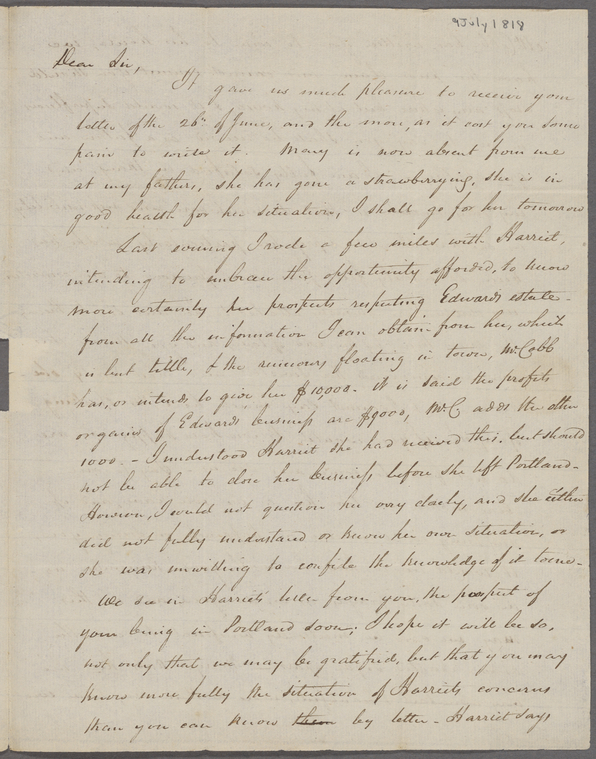 9 July 1818
Dear Sir,
It gave us much pleasure to receive your
letter of the 26th of June, and the more, as it cost you some
pain to write it. Mary is now absent from me
at my fathers, she has gone a strawberrying, she is in
good health for her situation, I shall go for her tomorrow
Last evening I rode a few miles with Harriet,
intending to embrace the opportunity afforded, to know
more certainly her prospects respecting Edwards estate -
from all the information I can obtain from her, which
is but little, & the rumours floating in town, Mr. Cobb
has, or intends to give her $10,000. It is said the profits
or gains of Edwards business are $9000, Mr. C adds the other
1000. - I understood Harriet she had received this, but should
not be able to close her business before she left Portland -
However, I would not question her very closely, and she either
did not fully understand or know her own situation, or
she was unwilling to confide the knowledge of it to me -
We see in Harriets' letter from you, the prospect of
your being in Portland soon; I hope it will be so,
not only that we may be gratified, but that you may
know more fully the situation of Harriets concerns
than you can know them by letter - Harriet says